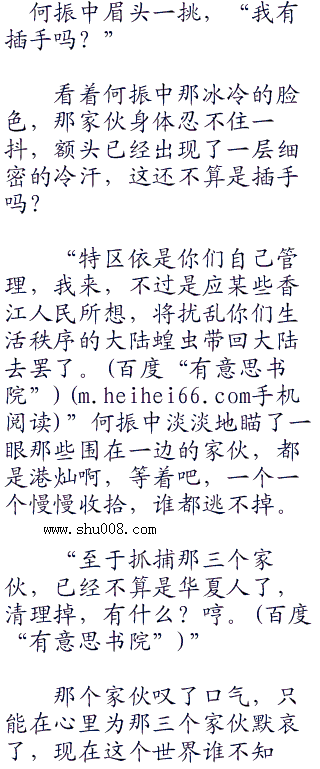 何振中眉头一挑，“我有
插手吗？”
看着何振中那冰冷的脸
色，那家伙身体忍不住一
抖，额头已经出现了一层细
密的冷汗，这还不算是插手
吗？
“特区依是你们自己管
理，我来，不过是应某些香
江人民所想，将扰乱你们生
活秩序的大陆蝗虫带回大陆
去罢了。(百度“有意思书
院”)(m.heihei66.com手机
阅读)”何振中淡淡地瞄了一
眼那些围在一边的家伙，都
是港灿啊，等着吧，一个一
个慢慢收拾，谁都逃不掉。
www.shu008.com
“至于抓捕那三个家
伙，已经不算是华夏人了，
清理掉，有什么？哼。(百度
“有意思书院”)”
那个家伙叹了口气，只
能在心里为那三个家伙默哀
了，现在这个世界谁不知